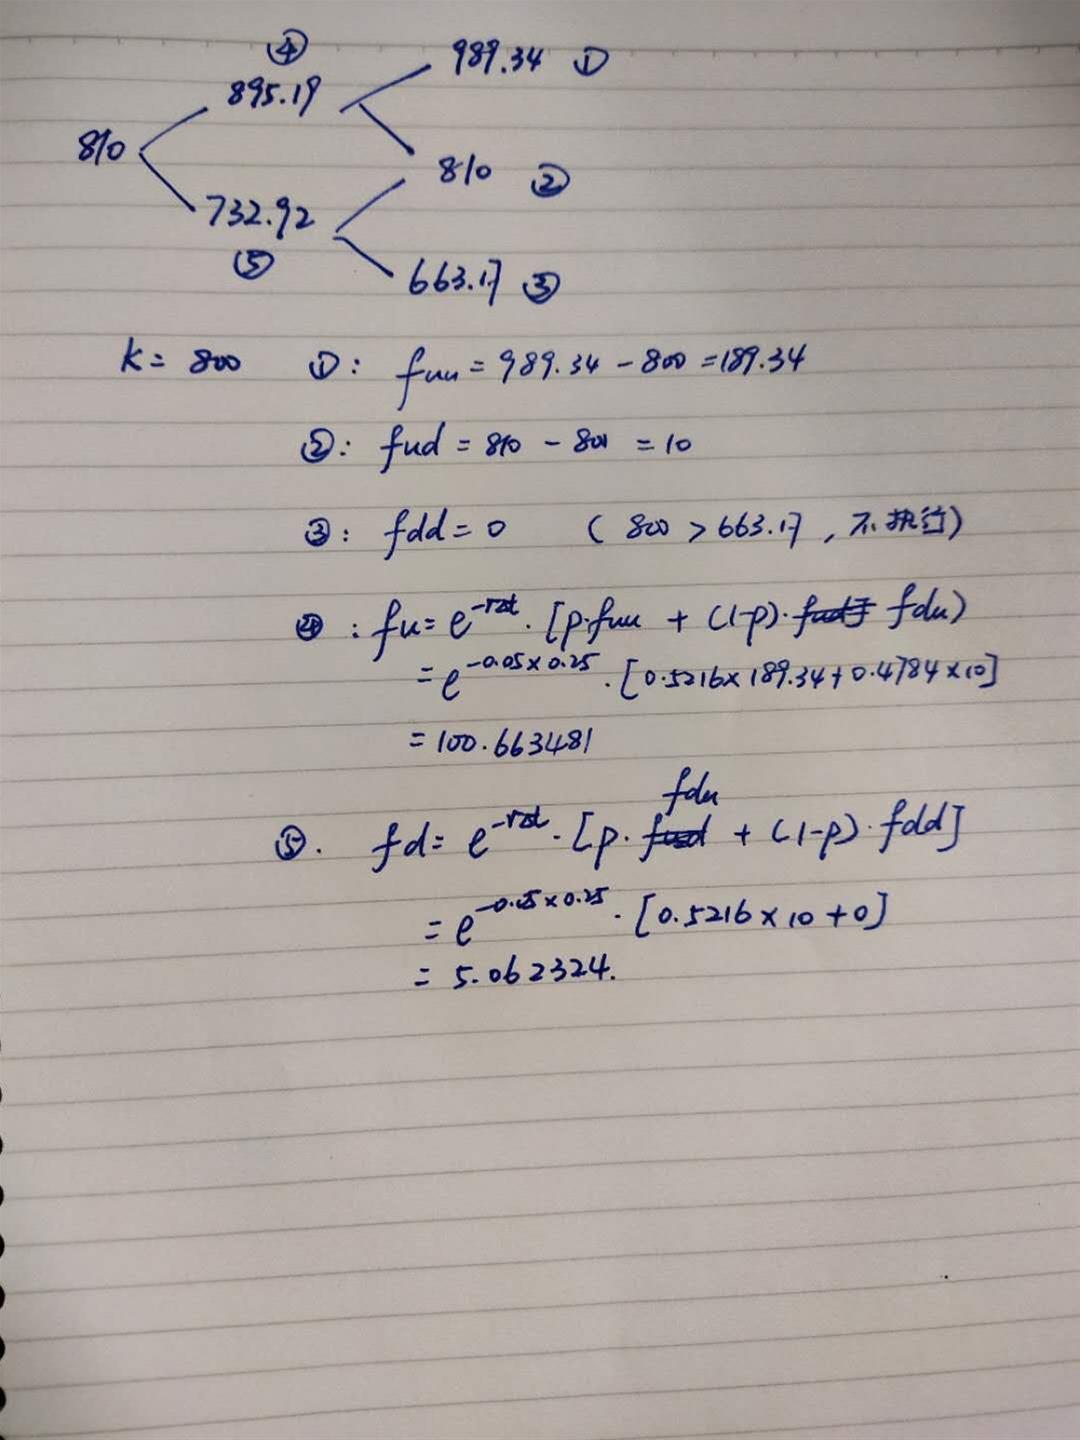 ④
989.34 ①
895.19
810
810 ②
732.92
⑤
663.17 ③
k = 800 ①: fuu = 989.34 - 800 = 189.34
②: fud = 810 - 800 = 10
③: fdd = 0 ( 800 > 663.17 , 不执行)
④: fu = e^-rΔt · [p·fuu + (1-p)· fdu)
= e^-0.05×0.25 · [0.5216×189.34+0.4784×10]
= 100.663481
fdu
⑤. fd = e^-rΔt · [p· fud + (1-p)· fdd]
= e^-0.05×0.25 · [0.5216×10+0]
= 5.062324.